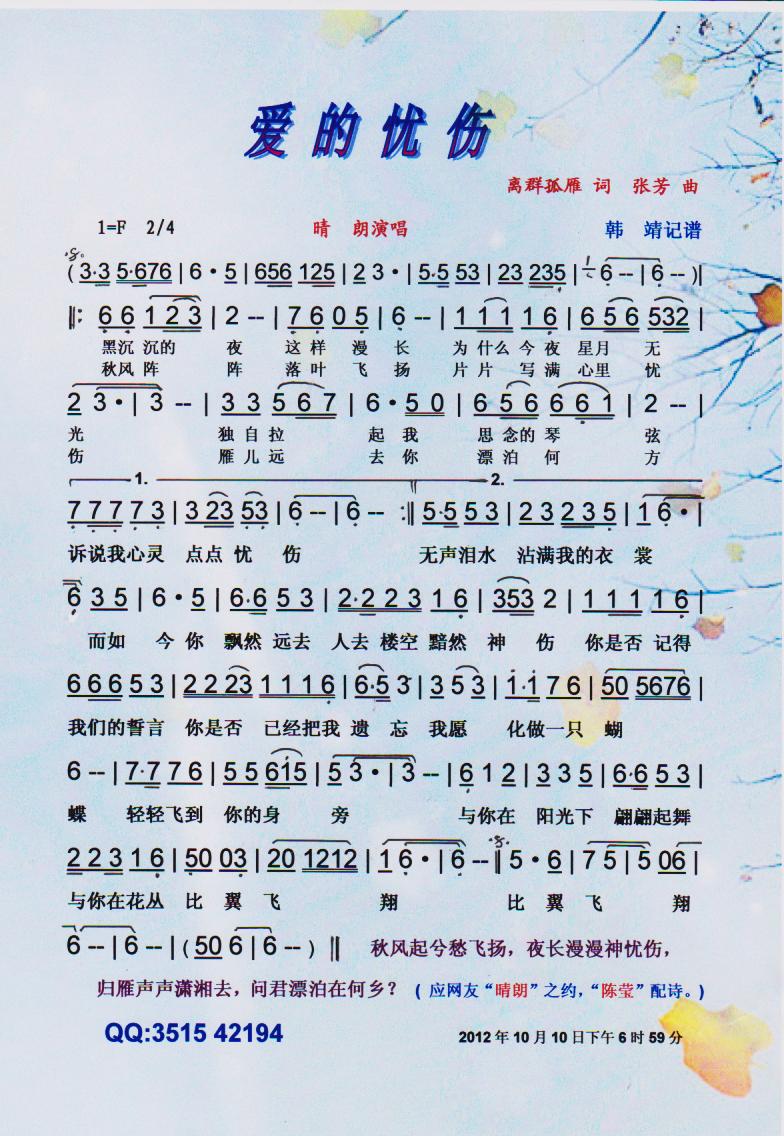 爱的忧伤
离群孤雁 词 张芳 曲
1=F 2/4 晴 朗演唱 韩 靖记谱
( 3·3 5·676 | 6·5 | 656 125 | 2 3· | 5·5 53 | 23 235 | 6 -- | 6 -- )‖
‖: 6 6 1 2 3 | 2 -- | 7 6 0 5 | 6 -- | 1 1 1 1 6 | 6 5 6 532 |
黑沉 沉的 夜 这样 漫 长 为 什么 今夜 星月 无
秋风 阵 阵 落叶 飞 扬 片 片 写 满 心里 忧
2 3· | 3 -- | 3 3 5 6 7 | 6·5 0 | 6 5 6 6 6 1 | 2 -- |
光 独 自 拉 起 我 思 念的 琴 弦
伤 雁 儿 远 去 你 漂 泊 何 方
1. 2.
7 7 7 7 3 | 3 23 53 | 6 -- | 6 -- :‖ 5·5 5 3 | 2 3 2 3 5 | 1 6· |
诉说我心灵 点点 忧 伤 无声泪水 沾满我的衣 裳
6 3 5 | 6·5 | 6·6 5 3 | 2·2 2 3 1 6 | 353 2 | 1 1 1 1 6 |
而如 今 你 飘然 远去 人去 楼空 黯然 神 伤 你是否 记得
6 6 6 5 3 | 2 2 23 1 1 1 6 | 6·5 3 | 3 5 3 | 1·1 7 6 | 50 5676 |
我们的誓言 你是否 已经把我 遗 忘 我愿 化做一只 蝴
6 -- | 7·7 7 6 | 5 5 615 | 5 3· | 3 -- | 6 1 2 | 3 3 5 | 6·6 5 3 |
蝶 轻轻飞到 你的身 旁 与你在 阳光下 翩翩起舞
2 2 3 1 6 | 50 03 | 20 1212 | 1 6· | 6 -- ‖ 5·6 | 7 5 | 5 06 |
与你在花丛 比 翼 飞 翔 比 翼 飞 翔
6 -- | 6 -- | ( 50 6 | 6 -- ) ‖ 秋风起兮愁飞扬，夜长漫漫神忧伤，
归雁声声潇湘去，问君漂泊在何乡？ ( 应网友“晴朗”之约，“陈莹”配诗。)
QQ:3515 42194 2012年10月10日下午6时59分